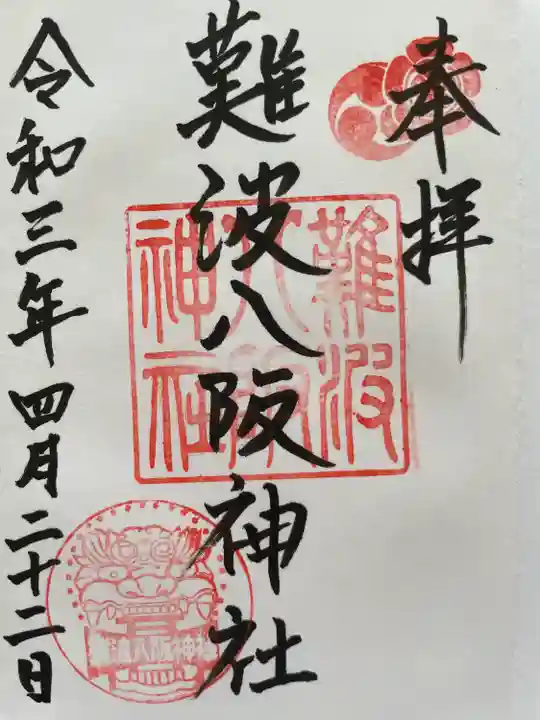 奉拝
難波八阪神社
難波八阪神社
令和三年四月二十二日
難波八阪神社